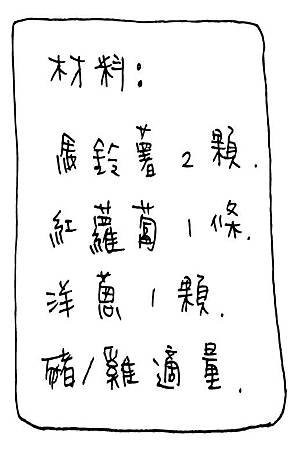 材料：
馬鈴薯2顆.
紅蘿蔔1條.
洋蔥1顆.
豬/雞適量.